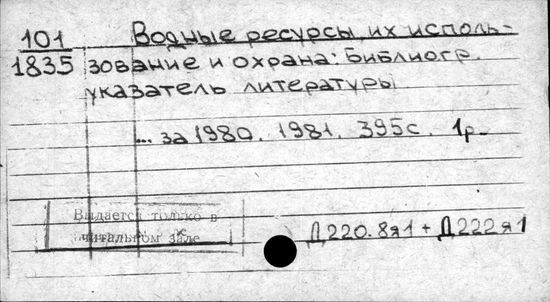 101 Водные ресурсы, их исполь-
1835 зование и охрана: Библиогр.
указатель литературы
... за 1980. 1981. 395с. 1р.
Выдается только в
читальном зале
Д220.8я1 + Д222я1